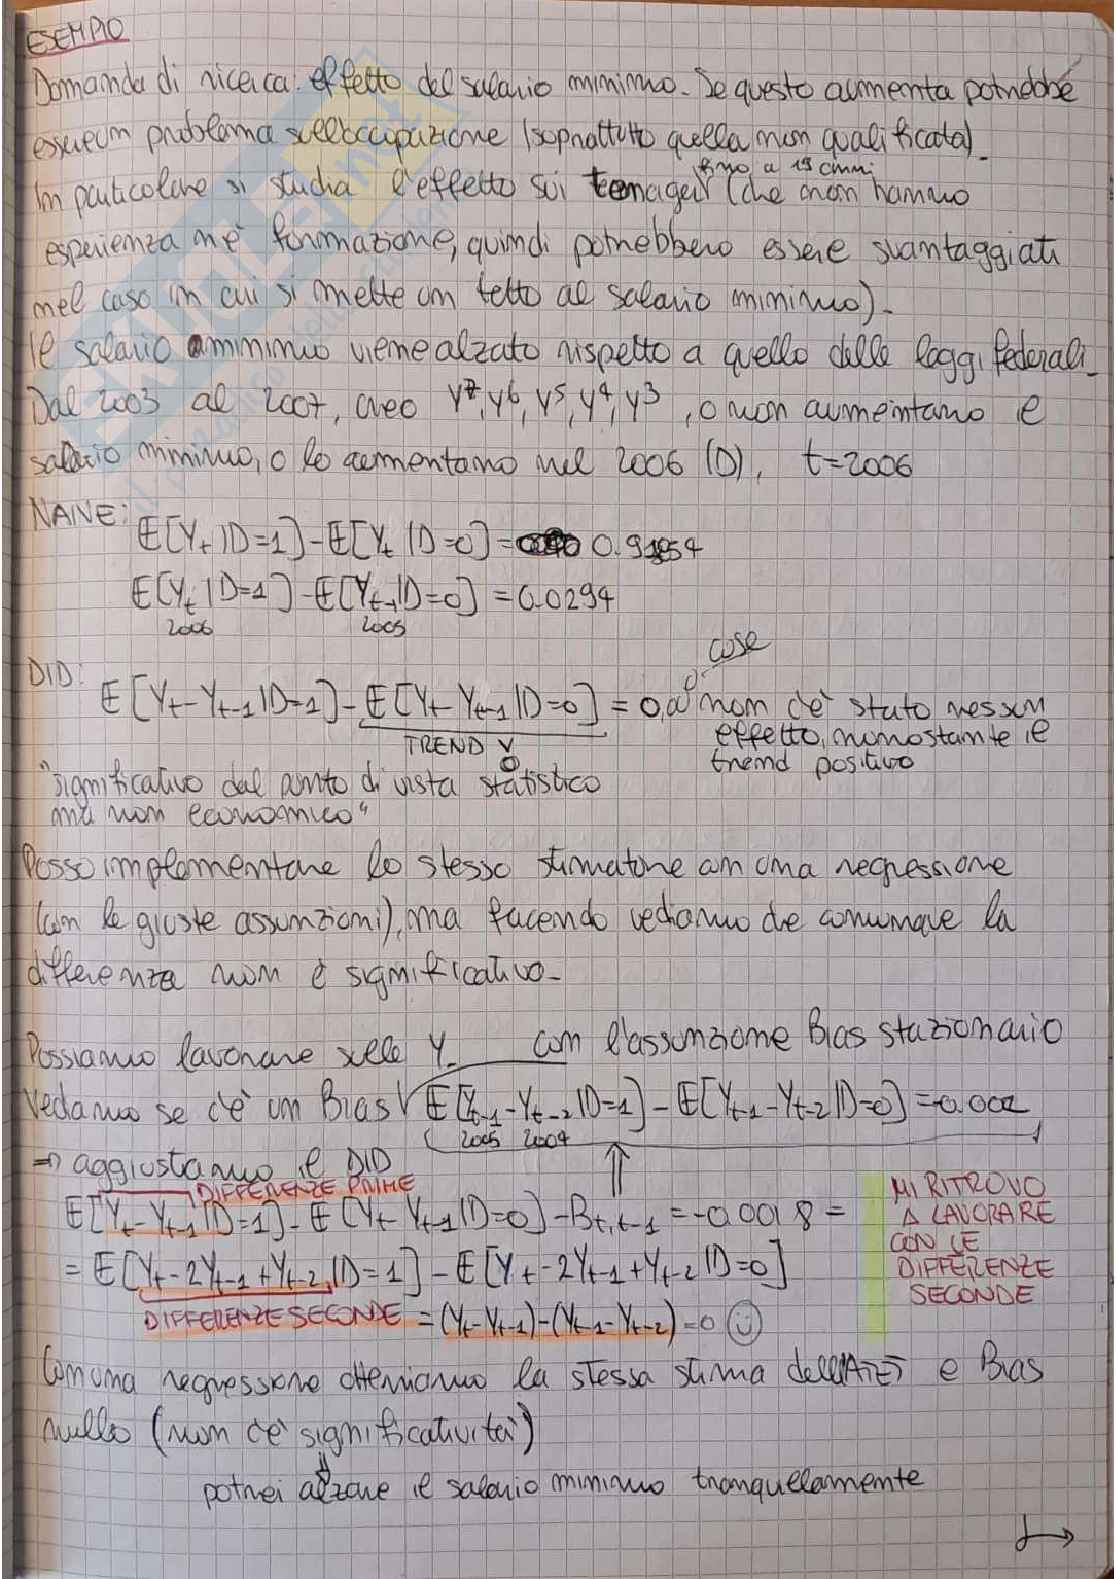 ESEMPIO
Domanda di ricerca: effetto del salario minimo. Se questo aumenta potrebbe
essere un problema sull'occupazione (soprattutto quella non qualificata).
In particolare si studia l'effetto sui teenager fino a 19 anni (che non hanno
esperienza né formazione, quindi potrebbero essere svantaggiati
nel caso in cui si mette un tetto al salario minimo).
Il salario minimo viene alzato rispetto a quello delle leggi federali.
Dal 2003 al 2007, creo Y7, Y6, Y5, Y4, Y3, o non aumentano il
salario minimo, o lo aumentano nel 2006 (D), t=2006
NAIVE:
E[Yt |D=1] - E[Yt |D=0] =
E[Yt |D=1] - E[Yt-1|D=0] = 0.0294
2006 2005
DID:
E[Yt - Yt-1 |D=1] - E[Yt - Yt-1 |D=0] = non c'è stato nessun
effetto, nonostante il
trend positivo
TREND
"significativo dal punto di vista statistico
ma non economico"
Posso implementare lo stesso stimatore con una regressione
(con le giuste assunzioni), ma facendo vediamo che comunque la
differenza non è significativo.
Possiamo lavorare sulle Y. con l'assunzione Bias stazionario
Vediamo se c'è un Bias E[Yt-1 - Yt-2 |D=1] - E[Yt-1 - Yt-2 |D=0] = -0.002
2005 2004
⇒ aggiustiamo il DID
DIFFERENZE PRIME
E[Yt - Yt-1 |D=1] - E[Yt - Yt-1 |D=0] - Bt,t-1 = -0.0018 =
= E[Yt - 2Yt-1 + Yt-2 |D=1] - E[Yt - 2Yt-1 + Yt-2 |D=0]
DIFFERENZE SECONDE = (Yt - Yt-1) - (Yt-1 - Yt-2) = 0
MI RITROVO
A LAVORARE
CON LE
DIFFERENZE
SECONDE
Con una regressione otteniamo la stessa stima dell'ATET e Bias
nullo (non c'è significatività)
potrei alzare il salario minimo tranquillamente